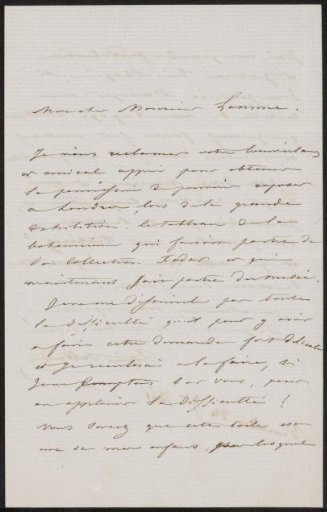 Mon cher Monsieur
Je viens réclamer votre bienveillant
et amical appui pour obtenir
la permission de pouvoir exposer
à Londres, lors de la grande
exhibition, le tableau de la
bohémienne qui faisait partie de
la collection Fodor et qui
maintenant fait partie du musée.
Je ne me dissimule pas toute
la difficulté qu'il peut y avoir
à faire cette demande fort délicate
et je renoncerais à la faire, si
je ne comptais sur vous, pour
en applanir la difficulté !
Vous savez que cette toile est
un de mes enfants, pour lesquels